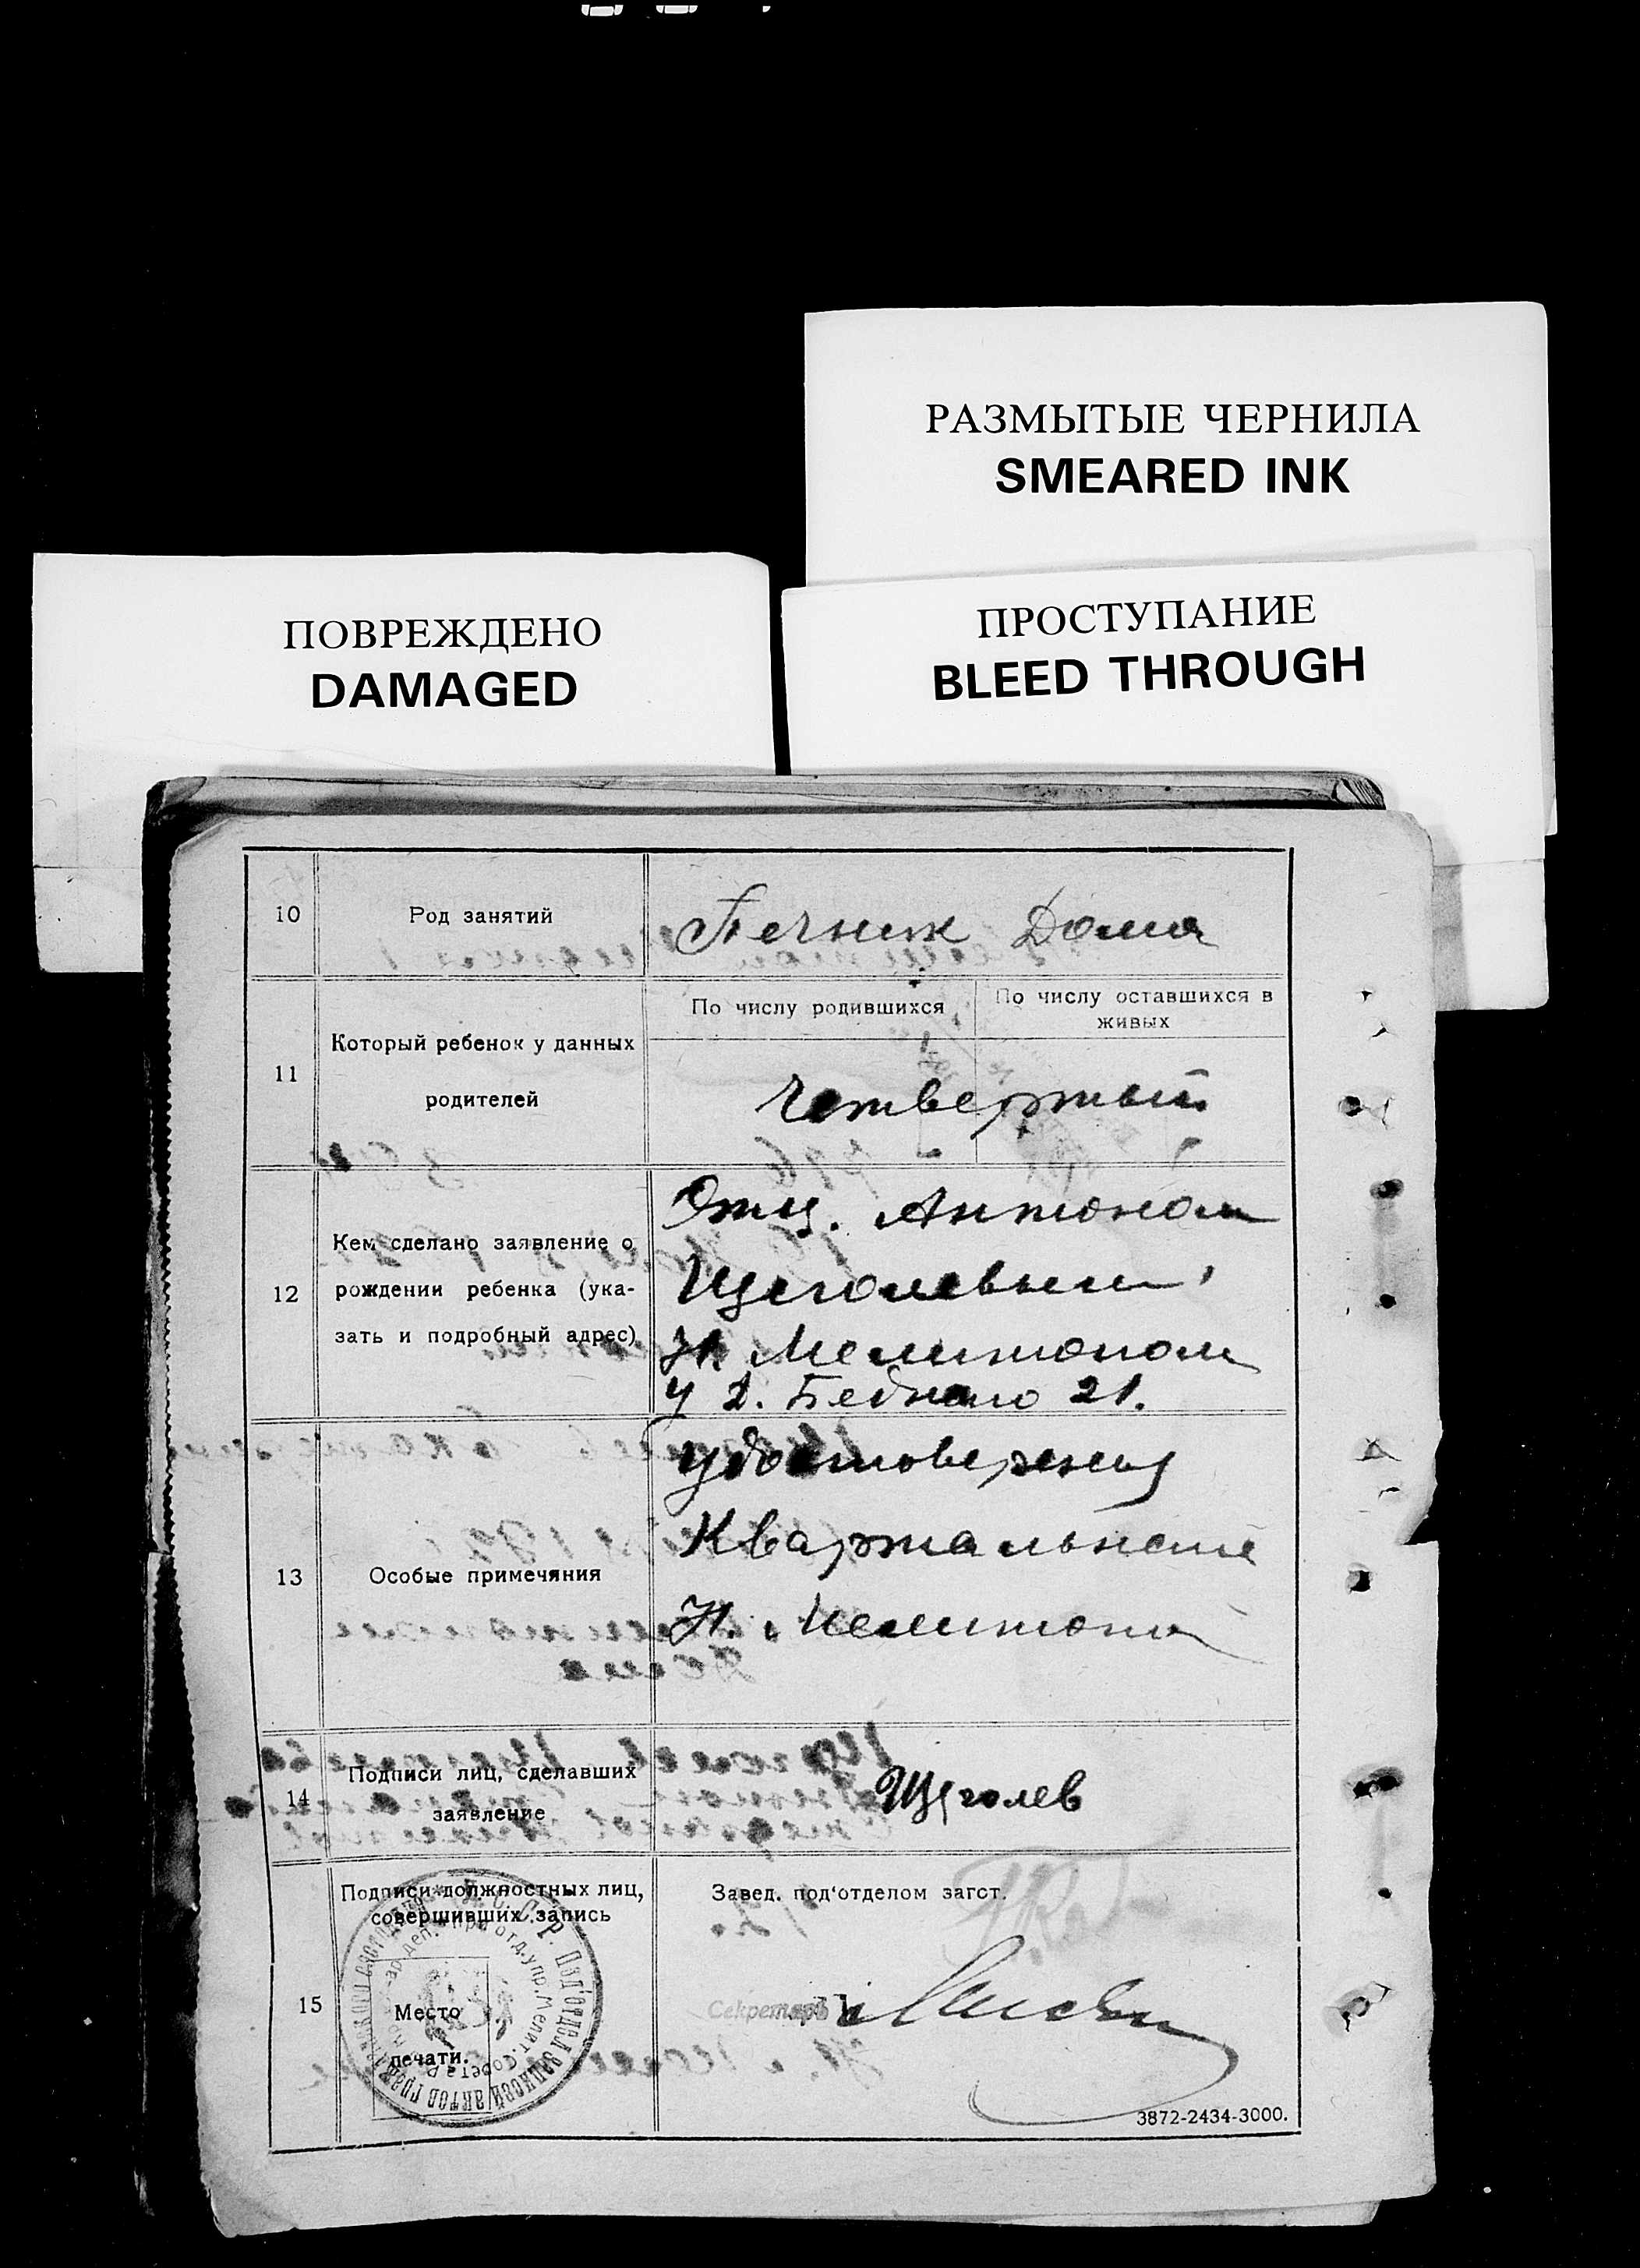 РАЗМЫТЫЕ ЧЕРНИЛА
SMEARED INK
ПОВРЕЖДЕНО
DAMAGED
ПРОСТУПАНИЕ
BLEED THROUGH
10
Род занятий
Печник Дома
11
Который ребенок у данных
родителей
По числу родившихся
По числу оставшихся в
живых
Четвертый
12
Кем сделано заявление о
рождении ребенка (ука-
зать и подробный адрес)
Отц. Антоном
Щеголевым
Н. Мелитополь
у Д. Бедного 21.
13
Особые примечания
Удостоверения
Квартального
Н. Мелитополь
14
Подписи лиц, сделавших
заявление
Щеголев
15
Подписи должностных лиц,
совершивших запись
Место
печати.
Завед. под'отделом загст.
Секретарь
3872-2434-3000.